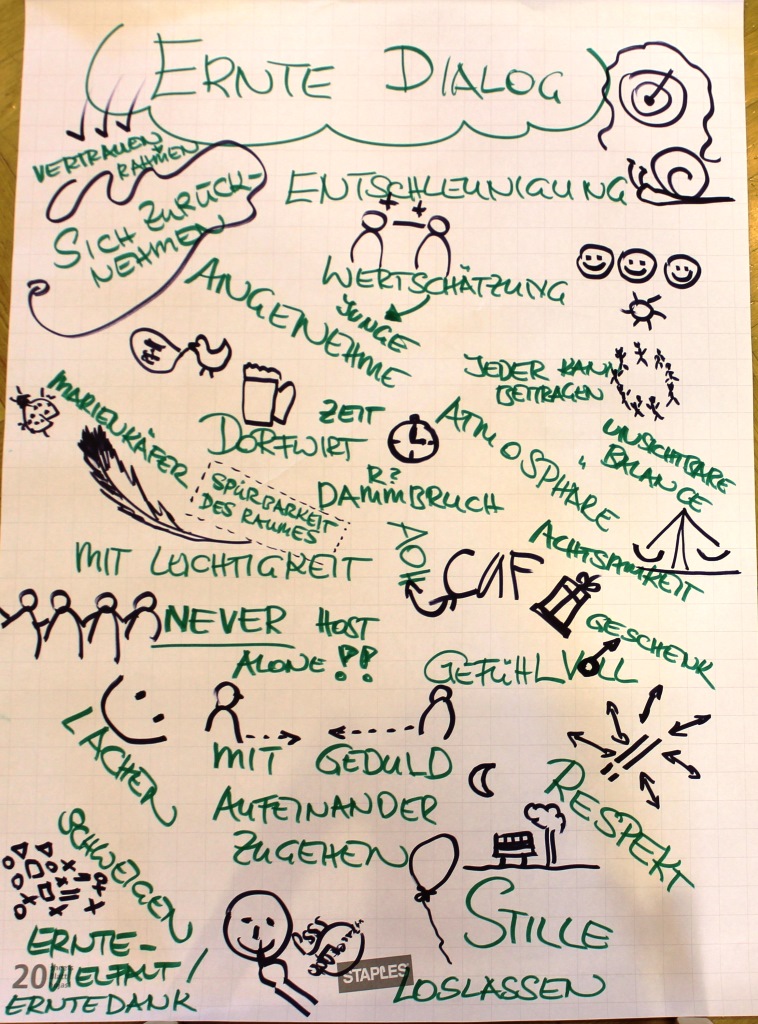 ERNTE DIALOG
VERTRAUEN
RAHMEN
ENTSCHLEUNIGUNG
SICH ZURÜCK-
NEHMEN
WERTSCHÄTZUNG
JUNGE
ANGENEHME
JEDER KANN
BEITRAGEN
MARIENKÄFER
ZEIT
DORFWIRT
ATMOSPHÄRE
UNSICHTBARE
BALANCE
SPÜRBARKEIT
DES RAUMES
R?
DAMMBRUCH
MIT LEICHTIGKEIT
AOH
CAF
ACHTSAMKEIT
NEVER HOST
ALONE!!
GESCHENK
GEFÜHLVOLL
LACHEN
MIT GEDULD
AUFEINANDER
ZUGEHEN
RESPEKT
SCHWEIGEN
STILLE
PSST
ERNTE-
VIELFALT/
ERNTEDANK
STAPLES
LOSLASSEN